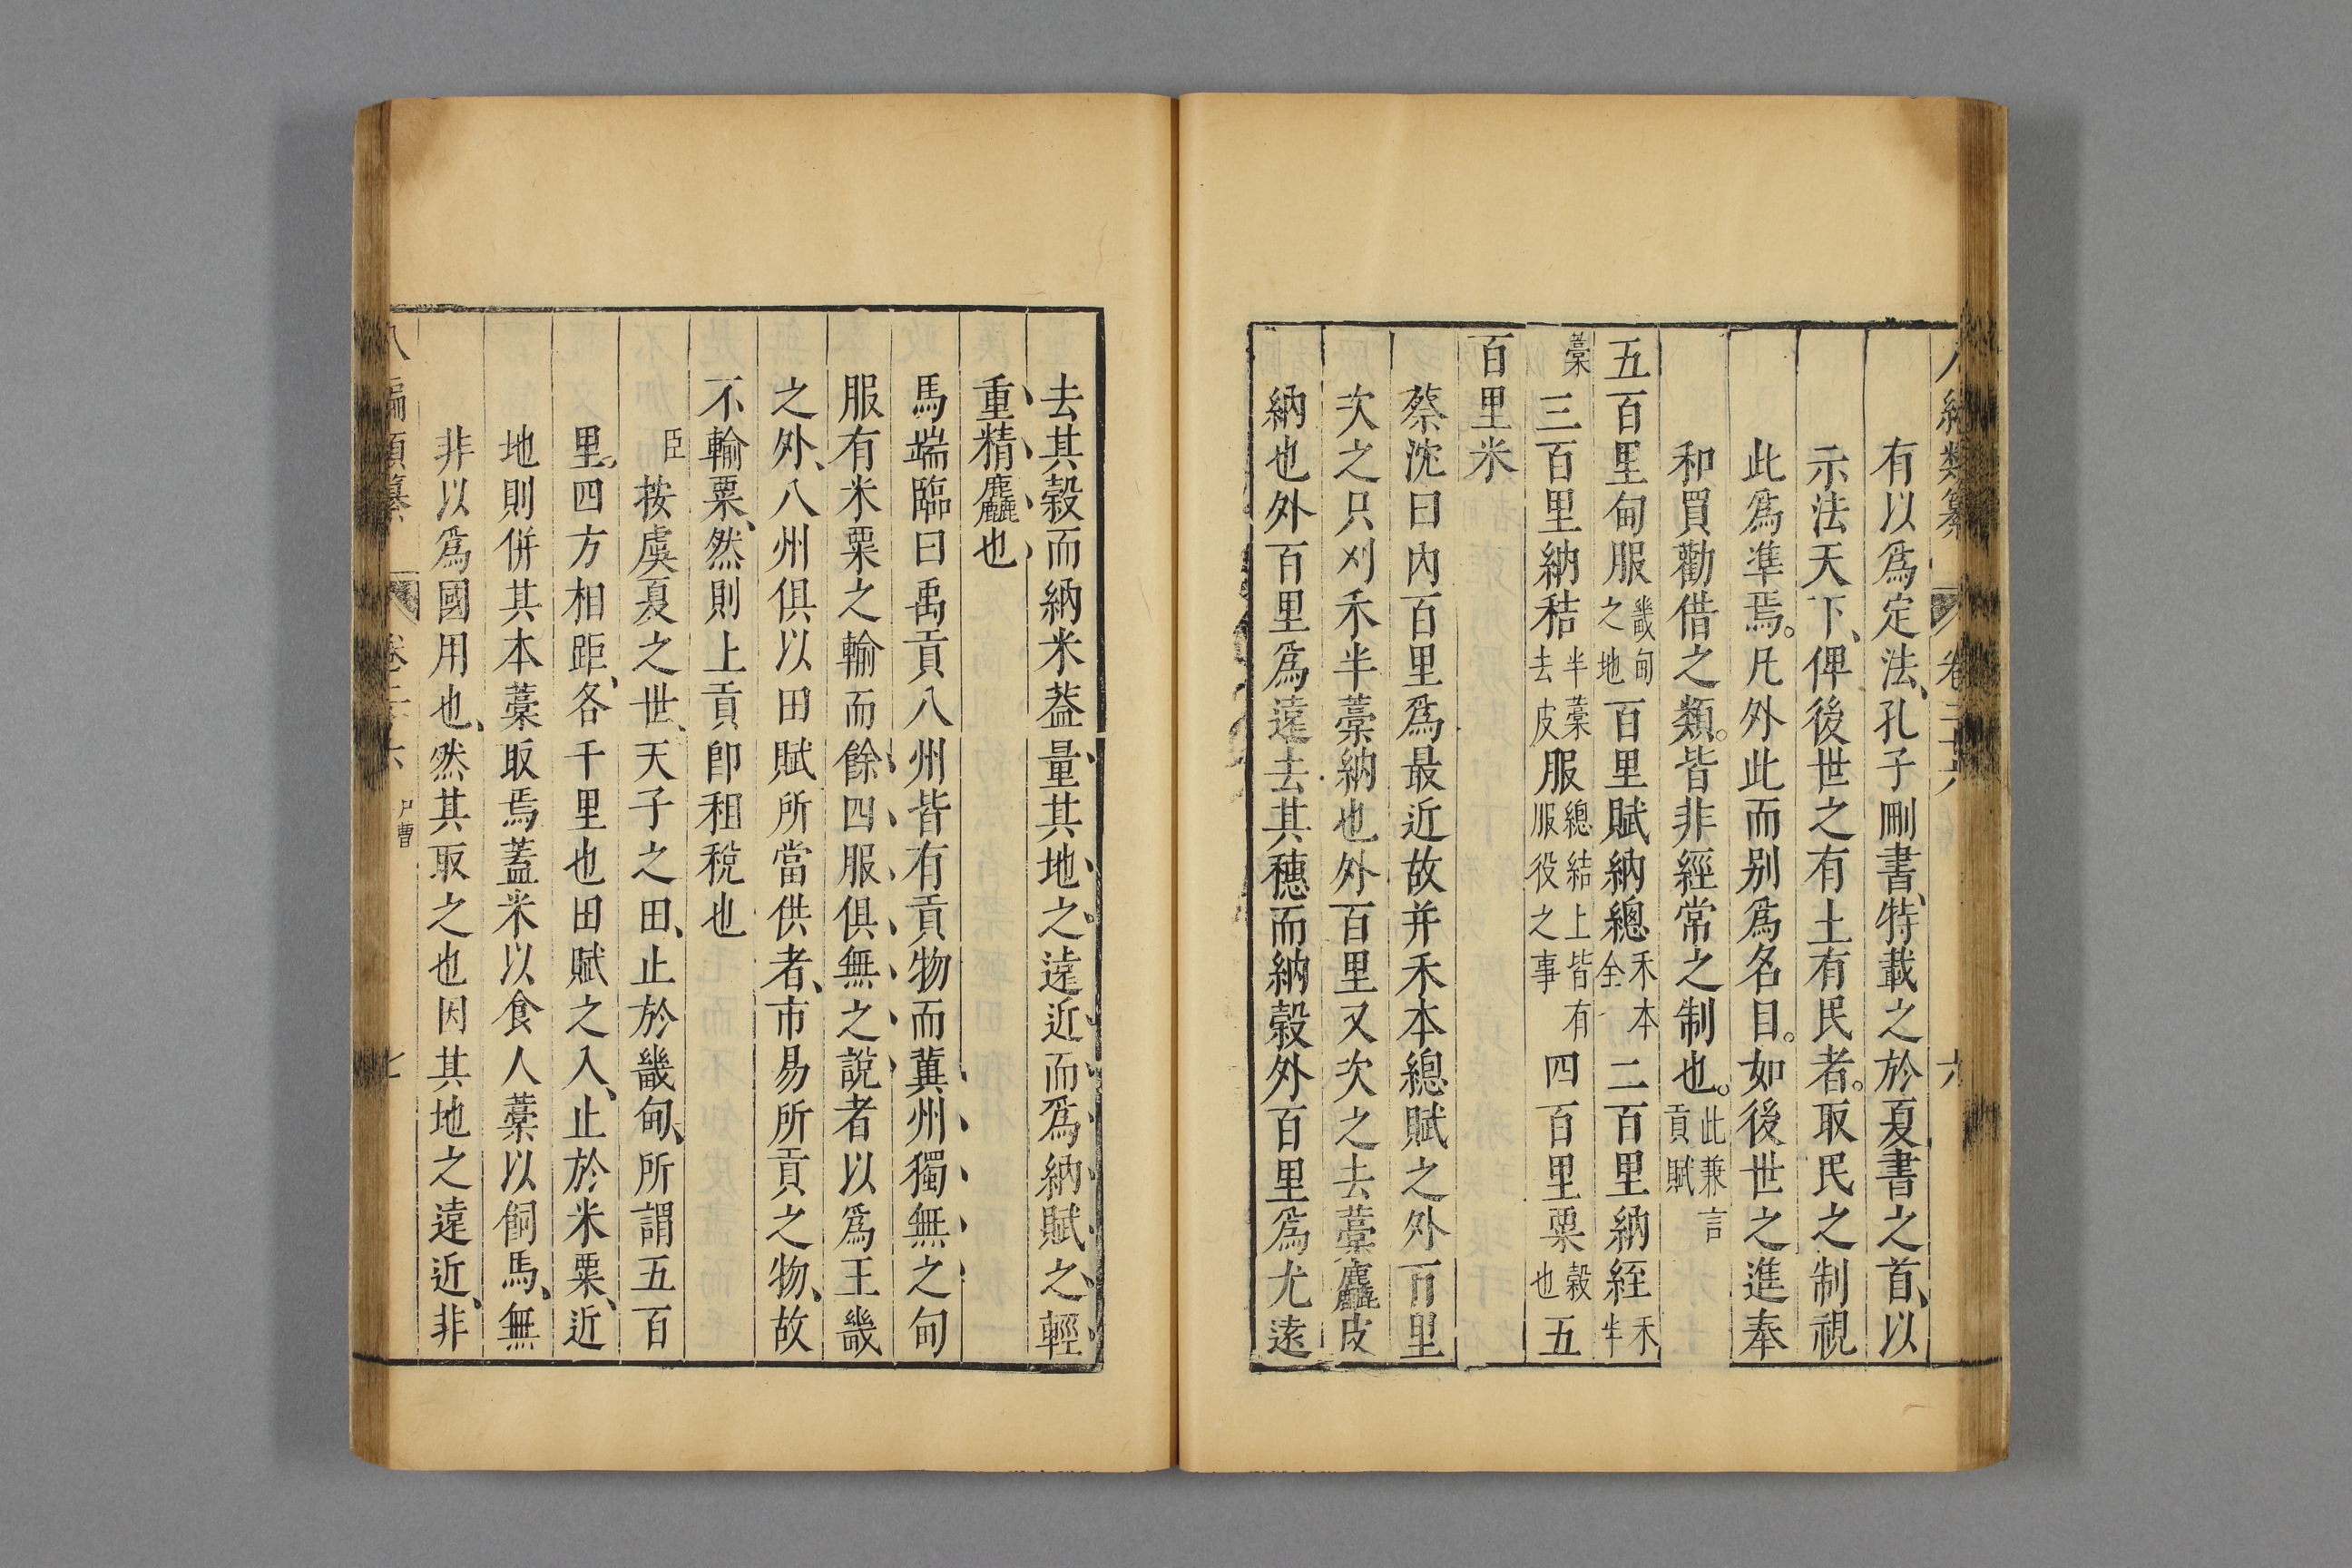 有以爲定法、孔子刪書、特載之於夏書之首、以
示法天下、俾後世之有土有民者。取民之制視
此爲準焉。凡外此而别爲名目。如後世之進奉
和買勸借之類。皆非經常之制也。此兼言貢賦
五百里甸服畿甸之地百里賦納總禾本全二百里納銍禾半
藁三百里納秸半藁去皮服總結上皆有服役之事四百里粟穀也五
百里米
蔡沈曰内百里爲最近故并禾本總賦之外百里
次之只刈禾半藁納也外百里又次之去藁麤皮
納也外百里爲遠去其穗而納榖外百里爲尤遠
去其榖而納米葢量其地之。遠近而爲納賦之輕
重精麤也
馬端臨曰禹貢八州皆有貢物而冀州獨無之甸
服有米粟之輸而餘四服俱無之說者以爲王畿
之外、八州俱以田賦所當供者、市易所貢之物、故
不輸粟、然則上貢卽租稅也
臣按虞夏之世、天子之田、止於畿甸、所謂五百
里。四方相距、各千里也田賦之入、止於米粟、近
地則併其本藁取焉蓋米以食人藁以飼馬、無
非以爲國用也、然其取之也因其地之遠近、非
八編類纂 卷二十六 戶曹 七